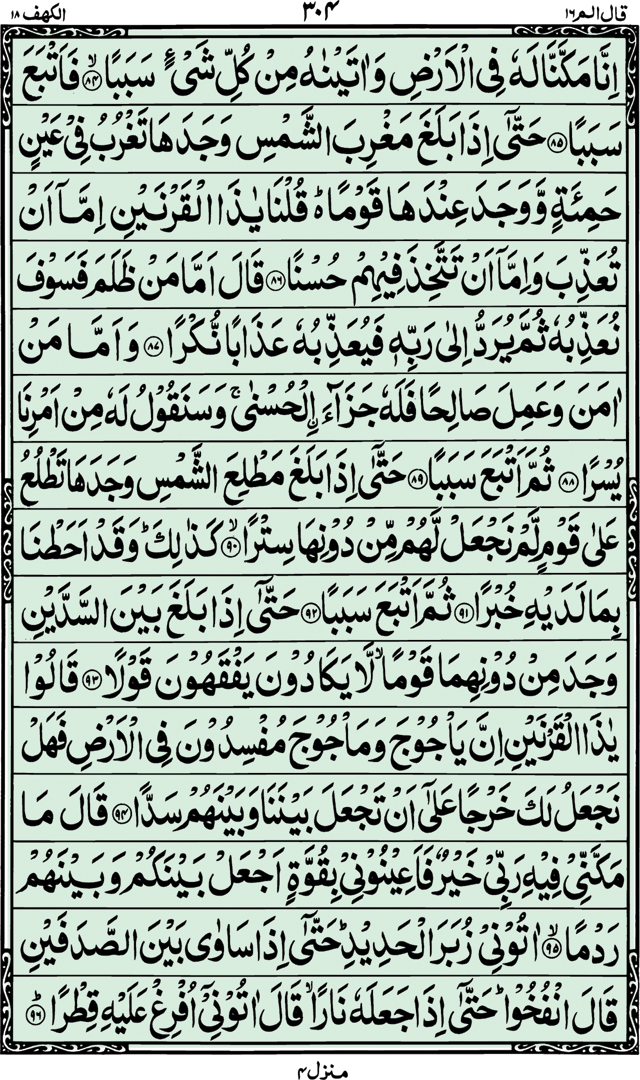 قال الم ١٦
٣٠٤
الكهف ١٨
اِنَّا مَكَّنَّا لَهٗ فِى الْاَرْضِ وَاٰتَيْنٰهُ مِنْ كُلِّ شَىْءٍ سَبَبًا ۙ‏﴿۸۴﴾ فَاَتْبَعَ
سَبَبًا‏﴿۸۵﴾ حَتّٰٓى اِذَا بَلَغَ مَغْرِبَ الشَّمْسِ وَجَدَهَا تَغْرُبُ فِىْ عَيْنٍ
حَمِئَةٍ وَّوَجَدَ عِنْدَهَا قَوْمًا ؕ قُلْنَا يٰذَا الْقَرْنَيْنِ اِمَّاۤ اَنْ
تُعَذِّبَ وَاِمَّاۤ اَنْ تَتَّخِذَ فِيْهِمْ حُسْنًا‏﴿۸۶﴾ قَالَ اَمَّا مَنْ ظَلَمَ فَسَوْفَ
نُعَذِّبُهٗ ثُمَّ يُرَدُّ اِلٰى رَبِّهٖ فَيُعَذِّبُهٗ عَذَابًا نُّكْرًا‏﴿۸۷﴾ وَاَمَّا مَنْ
اٰمَنَ وَعَمِلَ صَالِحًا فَلَهٗ جَزَآءَ ۨالْحُسْنٰى‌ ۚ وَسَنَقُوْلُ لَهٗ مِنْ اَمْرِنَا
يُسْرًا‏﴿۸۸﴾ ثُمَّ اَتْبَعَ سَبَبًا‏﴿۸۹﴾ حَتّٰٓى اِذَا بَلَغَ مَطْلِعَ الشَّمْسِ وَجَدَهَا تَطْلُعُ
عَلٰى قَوْمٍ لَّمْ نَجْعَلْ لَّهُمْ مِّنْ دُوْنِهَا سِتْرًا ۙ‏﴿۹۰﴾ كَذٰلِكَ ؕ وَقَدْ اَحَطْنَا
بِمَا لَدَيْهِ خُبْرًا‏﴿۹۱﴾ ثُمَّ اَتْبَعَ سَبَبًا‏﴿۹۲﴾ حَتّٰٓى اِذَا بَلَغَ بَيْنَ السَّدَّيْنِ
وَجَدَ مِنْ دُوْنِهِمَا قَوْمًا ۙ لَّا يَكَادُوْنَ يَفْقَهُوْنَ قَوْلًا‏﴿۹۳﴾ قَالُوْا
يٰذَا الْقَرْنَيْنِ اِنَّ يَاْجُوْجَ وَمَاْجُوْجَ مُفْسِدُوْنَ فِى الْاَرْضِ فَهَلْ
نَجْعَلُ لَكَ خَرْجًا عَلٰٓى اَنْ تَجْعَلَ بَيْنَنَا وَبَيْنَهُمْ سَدًّا‏﴿۹۴﴾ قَالَ مَا
مَكَّنِّىْ فِيْهِ رَبِّىْ خَيْرٌ فَاَعِيْنُوْنِىْ بِقُوَّةٍ اَجْعَلْ بَيْنَكُمْ وَبَيْنَهُمْ
رَدْمًا ۙ‏﴿۹۵﴾ اٰتُوْنِىْ زُبَرَ الْحَدِيْدِ‌ ؕ حَتّٰٓى اِذَا سَاوٰى بَيْنَ الصَّدَفَيْنِ
قَالَ انْفُخُوْا‌ ؕ حَتّٰٓى اِذَا جَعَلَهٗ نَارًا ۙ قَالَ اٰتُوْنِىْۤ اُفْرِغْ عَلَيْهِ قِطْرًا ؕ‏﴿۹۶﴾
منزل ٤